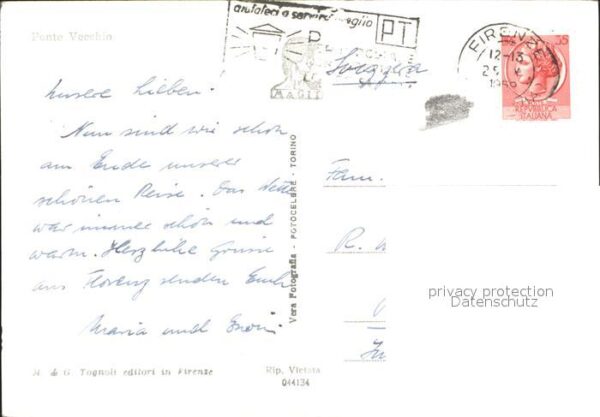 Ponte Vecchio
aiutateci a servirvi meglio
PT
FIRENZE
12-13
1956
35
REPUBBLICA
ITALIANA
Svizzera
Unsere Lieben.
Nun sind wir schon
am Ende unserer
schönen Reise. Das Wetter
war immer schön und
warm. Herzliche Grüsse
aus Florenz senden Euch
Maria und
Fam.
R.
privacy protection
Datenschutz
Vera Fotografia - FOTOCELERE - TORINO
N. & G. Tognoli editori in Firenze
Rip. Vietata
044134